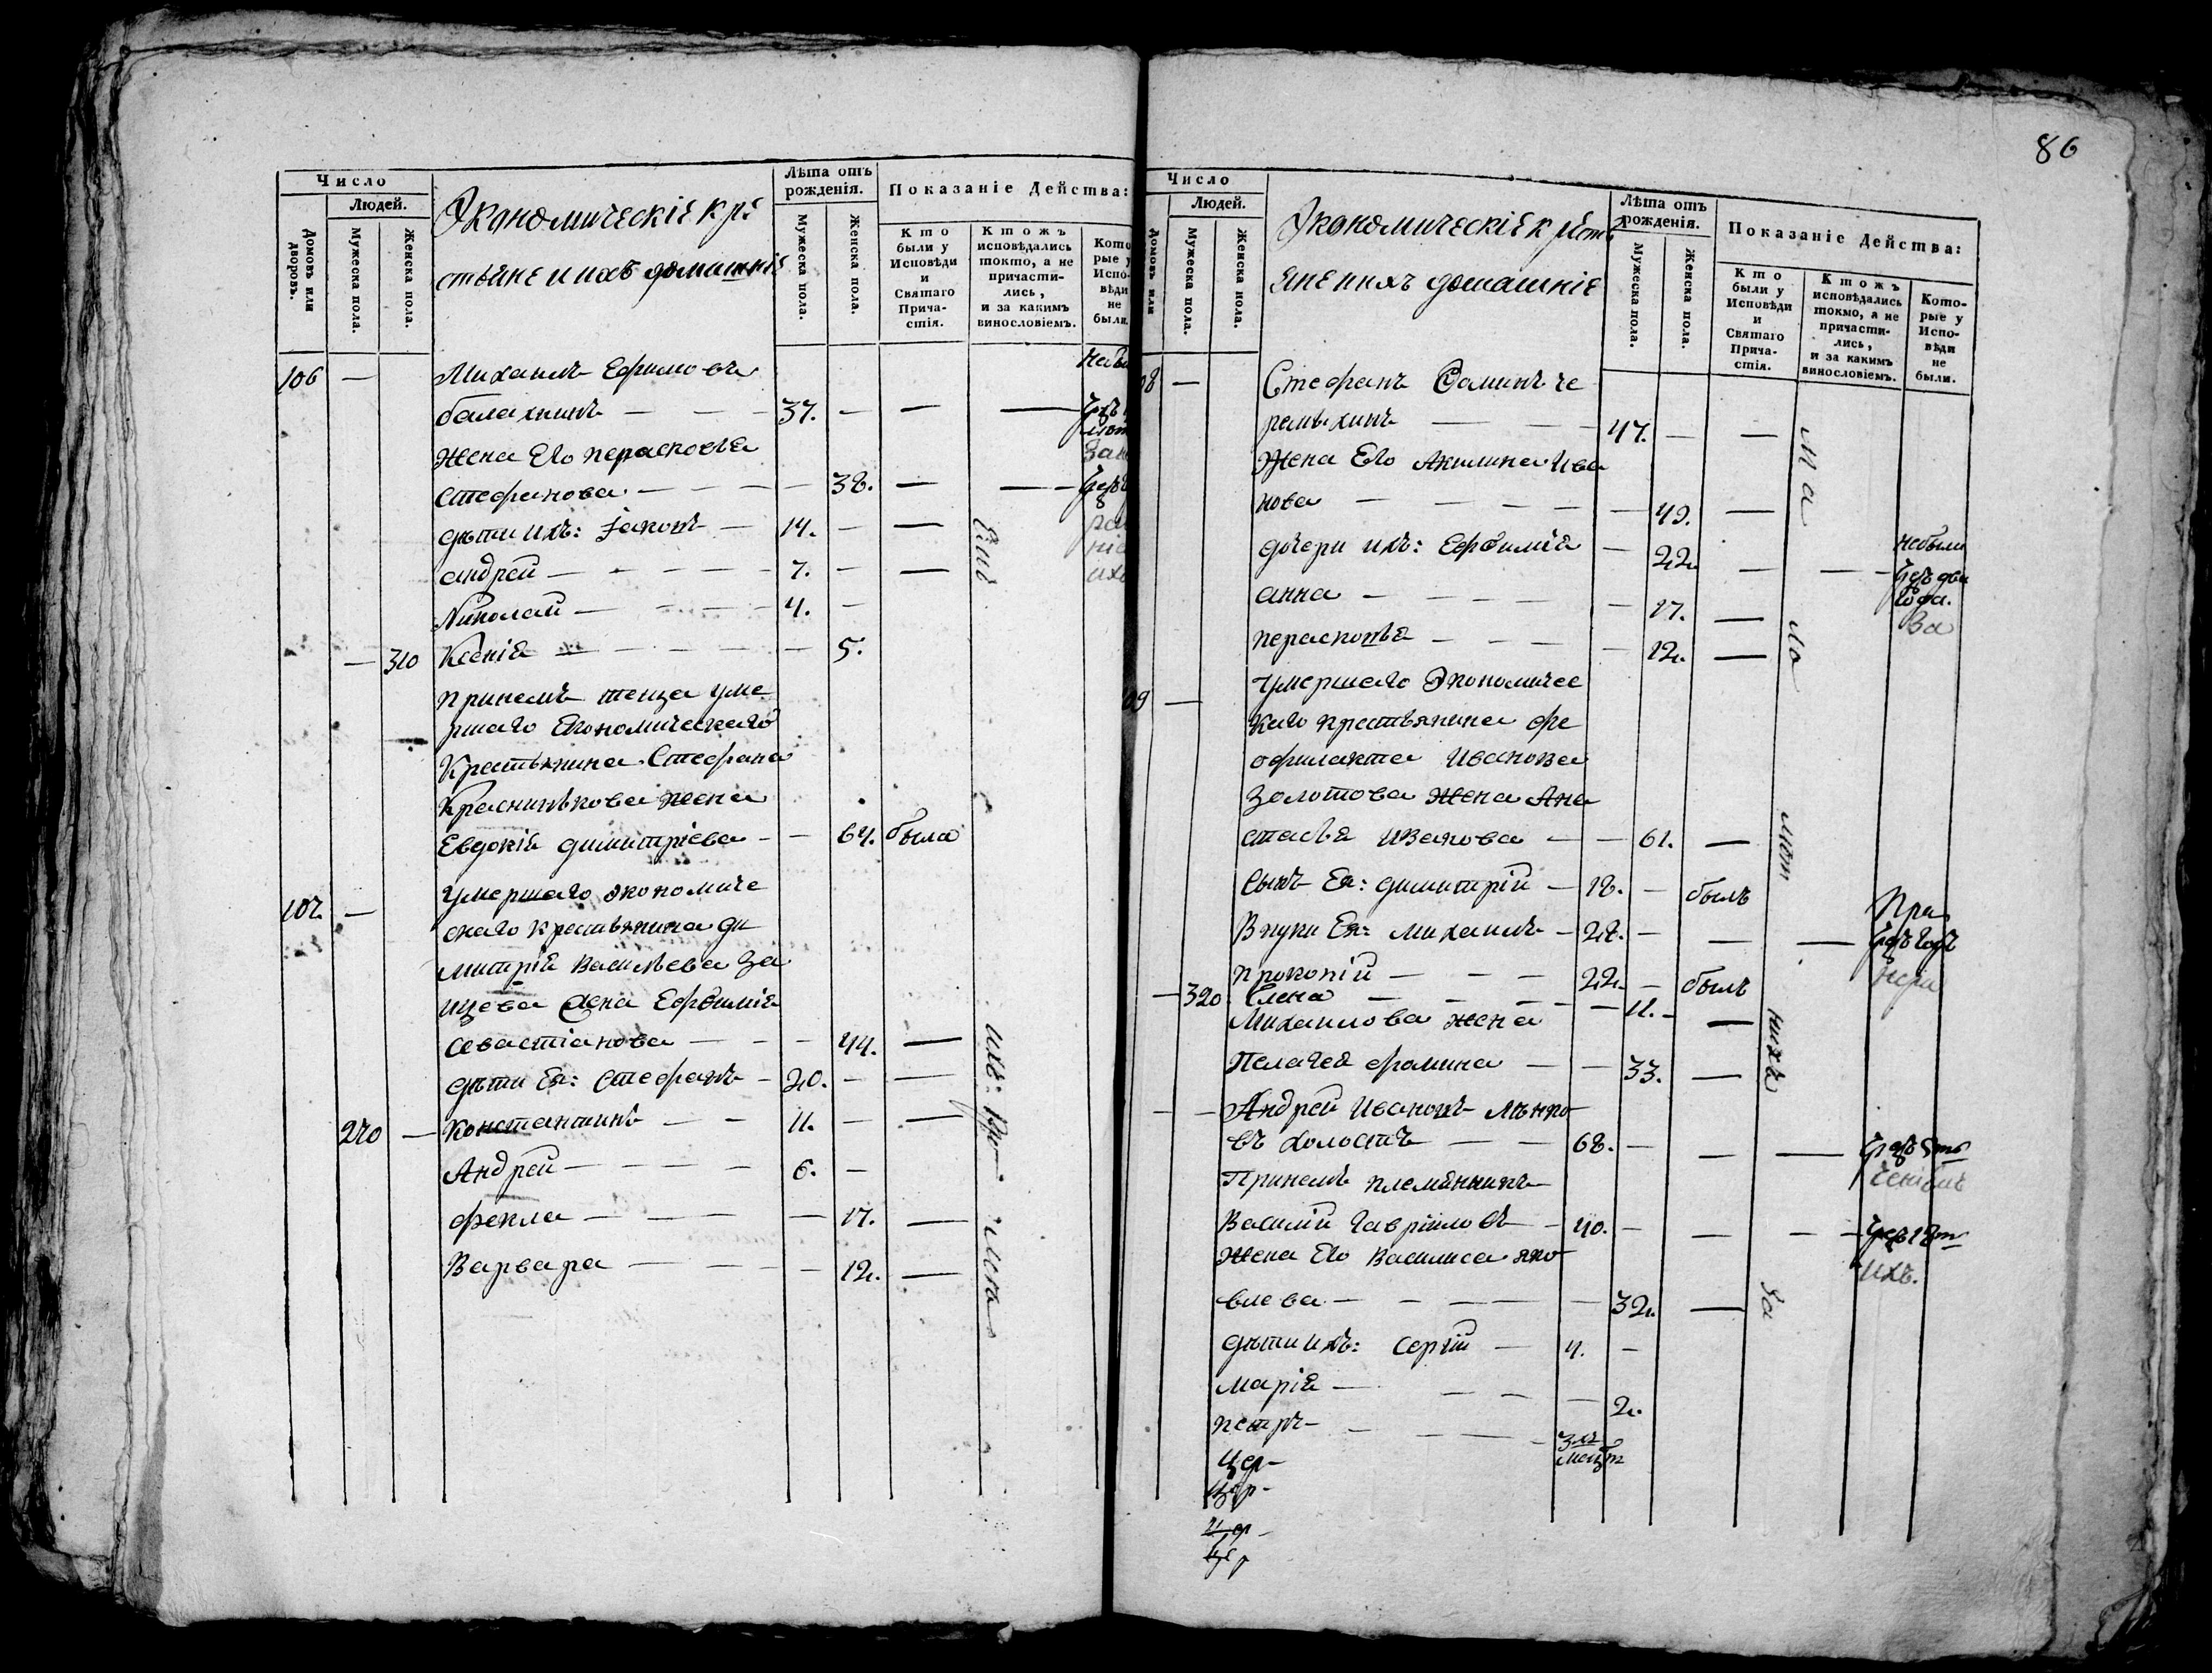 Число
Людей.
Домовъ или дворовъ.
Мужеска пола.
Женска пола.
Экономическіе кре
стьяне и ихъ домашніе
Лѣта отъ рожденія.
Мужеска пола.
Женска пола.
Показаніе Действа:
Кто были у Исповѣди и Святаго Прича-стія.
Ктожъ исповѣдались токто, а не причасти-лись, и за какимъ винословіемъ.
Кото рые у Испо-вѣди не были.
106 — Михаилъ Ефимовъ
балахнинъ — — — 37. — — —
Жена Его перасковья
Стефанова — — — — 38. — —
дѣти ихъ: Іаковъ — 14. — —
андрей — — — — — 7. — —
Николай — — — — 4. —
— 310 Ксенія — — — — — 5.
Принемъ теща уме
ршаго Экономическаго
Крестьянина Стефана
Красникова жена
Евдокія димитріева — — 64. была
107. — Умершаго экономиче
скаго крестьянина ди
митрія Васильева За
ицева жена Ефимія
Севастіанова — — — 44. —
дѣти Ея: Стефанъ — 20. — —
270 — Константинъ — — 11. — —
Андрей — — — — 6. —
фекла — — — — 17. —
Варвара — — — — 12. —
86
Число
Людей.
Домовъ или
Мужеска пола.
Женска пола.
Экономическіе крест
яне и ихъ домашніе
Лѣта отъ рожденія.
Мужеска пола.
Женска пола.
Показаніе Действа:
Кто были у Исповѣди и Святаго Прича-стія.
Ктожъ исповѣдались токмо, а не причасти-лись, и за какимъ винословіемъ.
Кото-рые у Испо-вѣди не были.
08 — Стефанъ Фоминъ че
ремыхинъ — — — 47. — —
Жена Его Акилина Ива
нова — — — — — 49. —
дочери ихъ: Ефимія — 22. — — небыли
анна — — — — — 17. —
перасковья — — — — 12. —
09 — Умершаго Экономичес
каго крестьянина фе
офилакта Иванова
Золотова жена Ана
стасья Иванова — — 61. —
Сынъ Ея: димитрій — 18. — былъ
Внуки Ея: Михаилъ — 28. — — —
Прокопій — — — 22. — былъ
— 320 Елена — — — — 11. —
Михаилова жена
Пелагея фомина — — 33. —
— — Андрей Ивановъ
въ холостъ — — 68. — — —
Принемъ племянникъ
Василій Гавриловъ — 40. — — — —
Жена Его Василиса яко
влева — — — — — 32. —
дѣти ихъ: Сергій — 4. —
марія — — — — 2.
петръ — — — — 3хъ